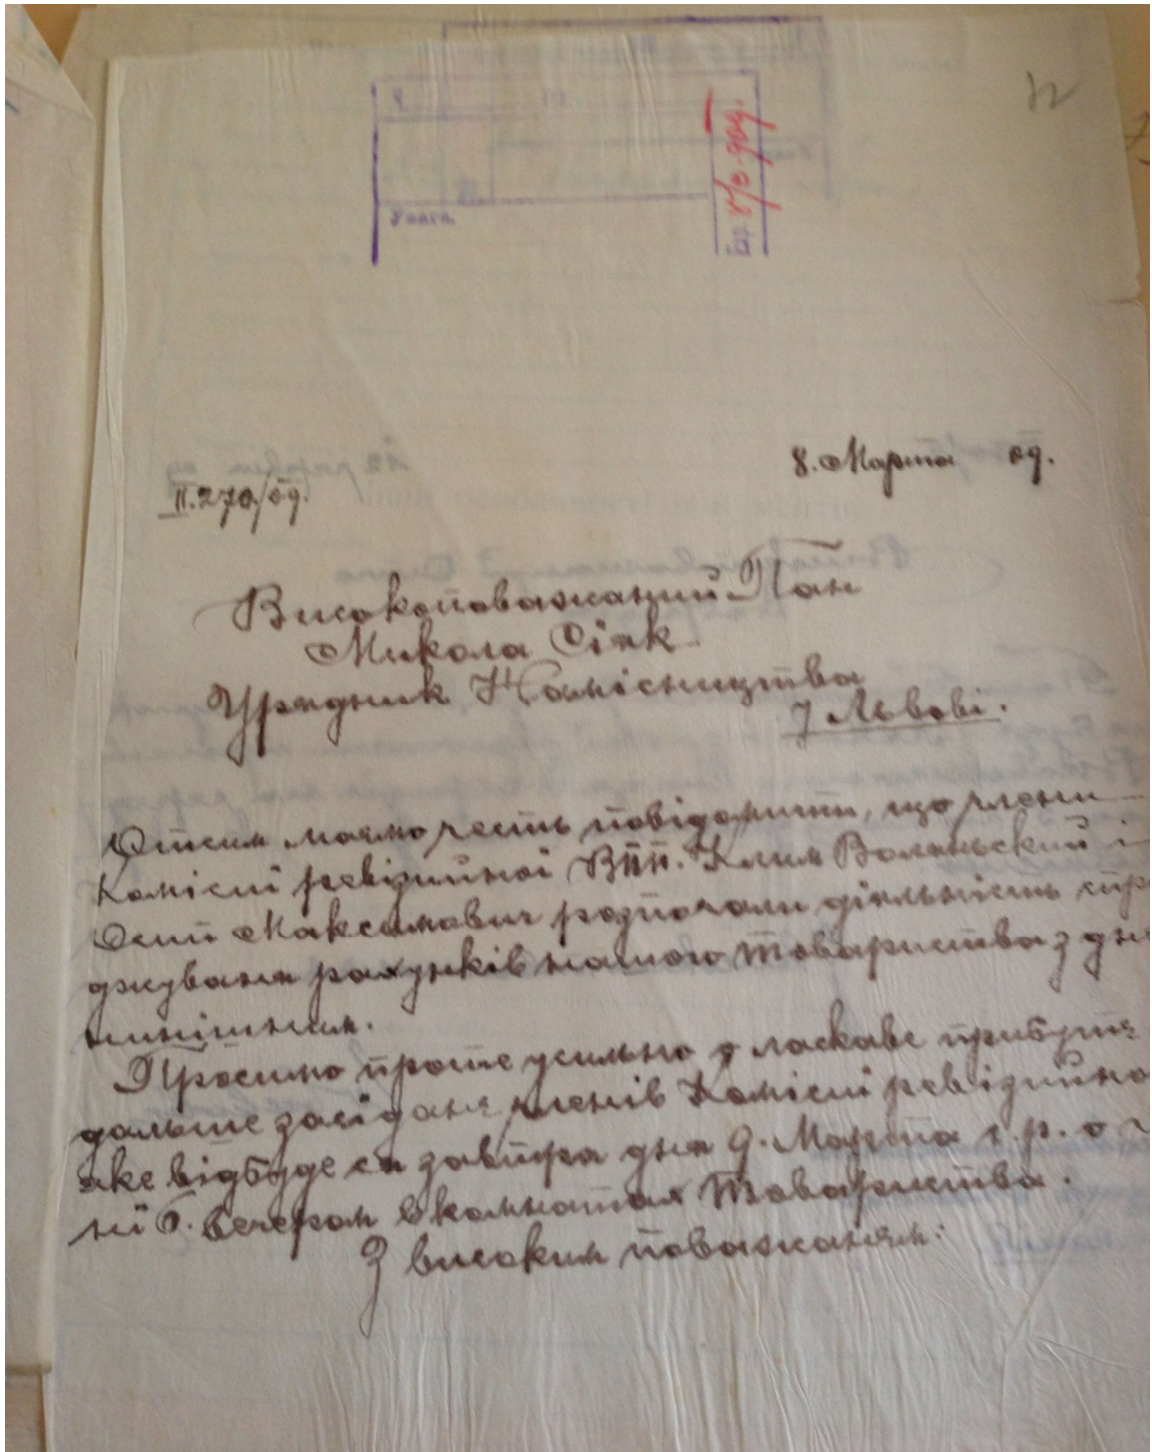 Увага.
8. Марта 09.
II.270/09.
Високоповажаний Пан
Микола Сїяк
Урядник Намісництва
у Львові.
Отсим маємо честь повідомити, що члени
Комісиї ревізийної ВПп. Клим Волянський і
Осип Максимович розпочали діяльність спр
джуваня рахунків нашого товариства з дне
нинішним.
Просимо проте усильно о ласкаве прибутє
дальше засїданє членів Комісиї ревізийно
яке відбуде ся завтра дня 9. Марта с.р. о г
нї 6. вечером в комнатах товариства.
З високим поважанєм: